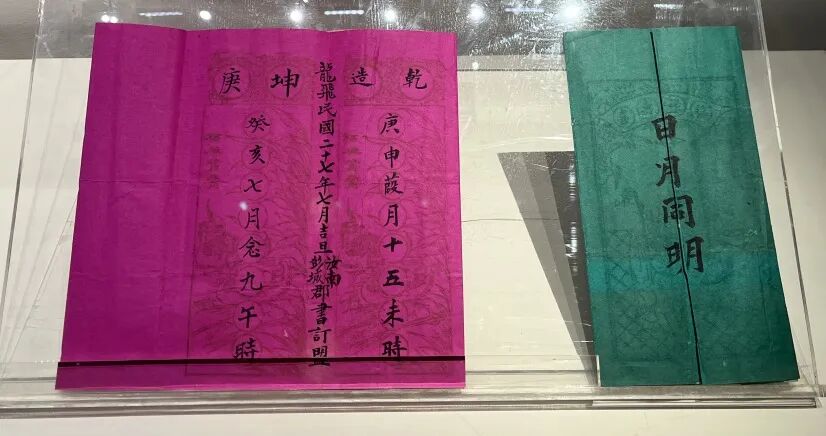 乾造
坤庚
庚申葭月十五未時
龍飛民國二十七年七月吉旦汝南彭城郡書訂盟
癸亥七月念九午時
日月同明